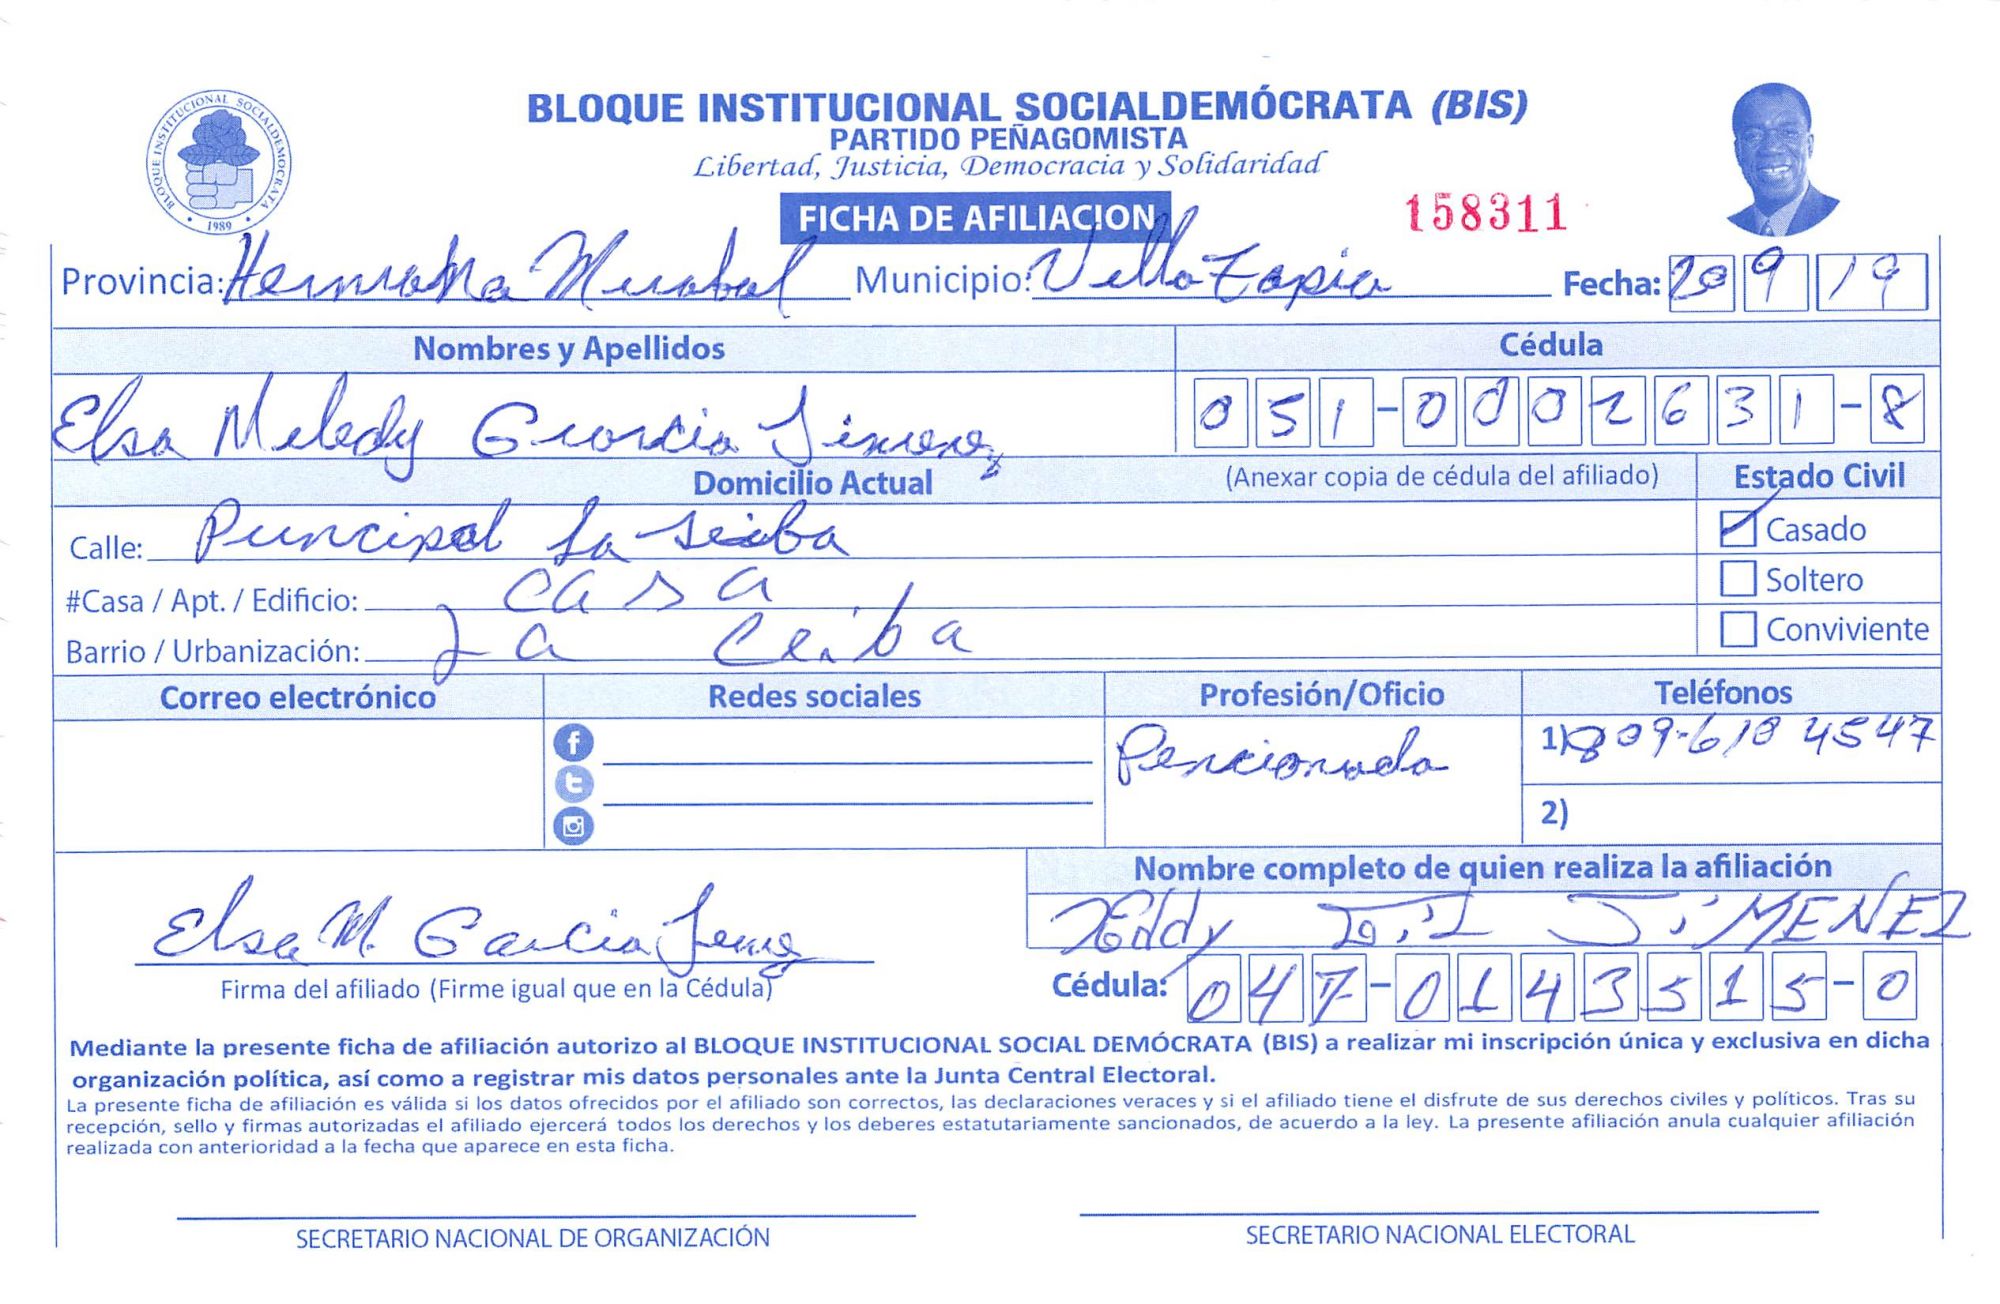 BLOQUE INSTITUCIONAL SOCIALDEMÓCRATA (BIS)
PARTIDO PEÑAGOMISTA
Libertad, Justicia, Democracia y Solidaridad
BLOQUE INSTITUCIONAL SOCIALDEMOCRATA
1989
FICHA DE AFILIACION
158311
Provincia: Hermana Mirabal Municipio: Villa Tapia Fecha: 20 9 19
Nombres y Apellidos Cédula
Elsa Meledy Garcia Jimenez 051-0002631-8
Domicilio Actual (Anexar copia de cédula del afiliado) Estado Civil
Calle: Principal La Seiba Casado
#Casa / Apt. / Edificio: casa Soltero
Barrio / Urbanización: La Ceiba Conviviente
Correo electrónico Redes sociales Profesión/Oficio Teléfonos
Pencionada 1) 809-610 4547
2)
Nombre completo de quien realiza la afiliación
Eddy Gil JiMENEZ
Elsa M. Garcia
Firma del afiliado (Firme igual que en la Cédula) Cédula: 047-0143515-0
Mediante la presente ficha de afiliación autorizo al BLOQUE INSTITUCIONAL SOCIAL DEMÓCRATA (BIS) a realizar mi inscripción única y exclusiva en dicha
organización política, así como a registrar mis datos personales ante la Junta Central Electoral.
La presente ficha de afiliación es válida si los datos ofrecidos por el afiliado son correctos, las declaraciones veraces y si el afiliado tiene el disfrute de sus derechos civiles y políticos. Tras su
recepción, sello y firmas autorizadas el afiliado ejercerá todos los derechos y los deberes estatutariamente sancionados, de acuerdo a la ley. La presente afiliación anula cualquier afiliación
realizada con anterioridad a la fecha que aparece en esta ficha.
SECRETARIO NACIONAL DE ORGANIZACIÓN SECRETARIO NACIONAL ELECTORAL